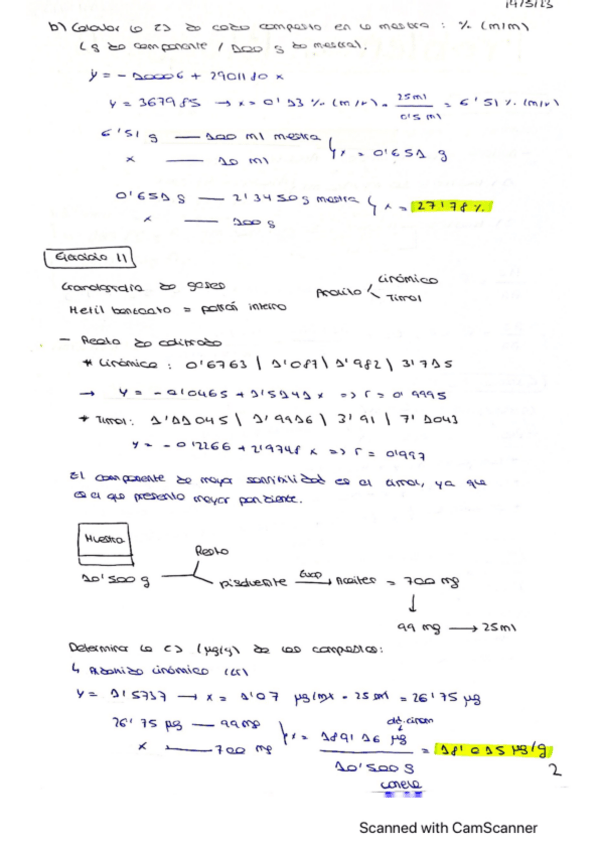 14/3/23
b) Calcular la [] de cada compuesto en la muestra: % (m/m)
(g de componente / 100 g de muestra).
y = - 10006 + 2901180 x
y = 367985 → x = 0'13 % (m/v) · 25 ml / 0'5 ml = 6'51 % (m/v)
6'51 g — 100 ml muestra
x — 10 ml } x = 0'651 g
0'651 g — 2'3450 g muestra } x = 27'78 %
x — 100 g
Ejercicio 11
Cromatografía de gases
Aceite < Cinámico
Timol
Metil benzoato = patrón interno
- Recta de calibrado
* Cinámico: 0'6763 | 1'087 | 1'982 | 3'715
→ y = - 0'0465 + 1'5141 x => r = 0'9995
* Timol: 1'11045 | 1'9916 | 3'91 | 7'1043
y = - 0'2266 + 2'9748 x => r = 0'997
El componente de mayor sensibilidad es el timol, ya que
es el que presenta mayor pendiente.
Muestra
Resto
10'500 g
Disolvente Evap → Aceites = 700 mg
↓
99 mg → 25 ml
Determina la C) (µg/g) de los compuestos:
↳ Aldehído cinámico
y = 1'5737 → x = 1'07 µg/ml · 25 ml = 26'75 µg
26'75 µg — 99 mg
x — 700 mg } x = 189'16 µg / 10'500 g = 18'015 µg/g
canela
2
Scanned with CamScanner